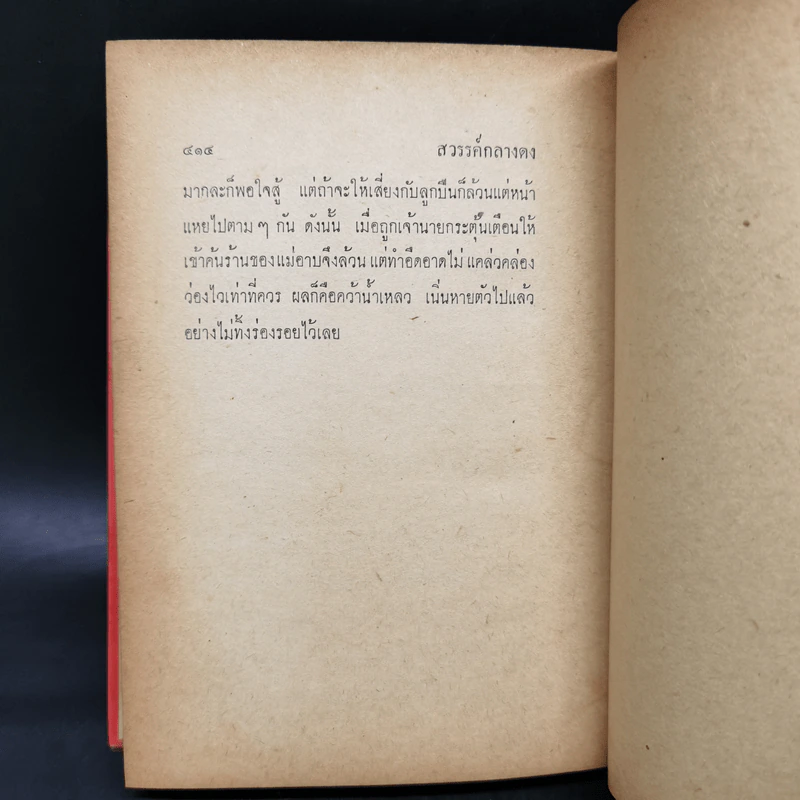 ๔๑๔ สวรรค์กลางดง
มากละก็พอใจสู้ แต่ถ้าจะให้เสี่ยงกับลูกปืนก็ล้วนแต่หน้า
แหยไปตาม ๆ กัน ดังนั้น เมื่อถูกเจ้านายกระตุ้นเตือนให้
เข้าค้นร้านของแม่อาบจึงล้วน แต่ทำอืดอาดไม่ แคล่วคล่อง
ว่องไวเท่าที่ควร ผลก็คือคว้าน้ำเหลว เนิ่นหายตัวไปแล้ว
อย่างไม่ทิ้งร่องรอยไว้เลย